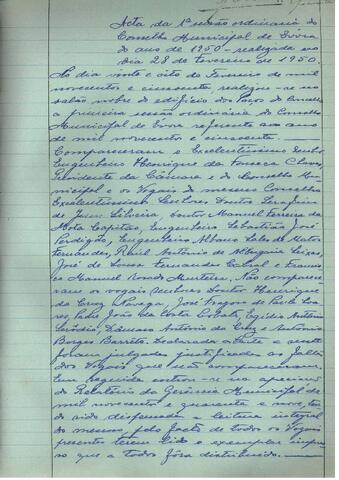 Acta da 1ª sessão ordinaria do
Conselho Municipal de Évora
do ano de 1950 - realizada no
dia 28 de fevereiro de 1950.
Ao dia vinte e oito de Fevereiro de mil
novecentos e cincoenta realizou-se no
salão nobre do edificio dos Paços do Concelho
a primeira sessão ordinária do Conselho
Municipal de Evora referente ao ano
de mil novecentos e cincoenta.
Compareceram o Excelentissimo Senhor
Engenheiro Henrique da Fonseca Chaves,
Presidente da Câmara e do Conselho Mu-
nicipal e os Vogais do mesmo Conselho
Excelentissimos Senhores Doutor Serafim
de Jesus Silveira, Doutor Manuel Ferreira da
Mota Capitão, Engenheiro Sebastião José
Perdigão, Engenheiro Albano Sales de Matos
Fernandes, Raul António de
José de Sousa Fernandes Cabral e Francis-
co Manuel Rosado Monteiro. Não compare-
ceram os vogais Senhores Doutor Henrique
da Cruz José de Paula Soa-
res, Padre João da Costa Egídio António
Dâmaso António da Cruz e António
Borges Barrêto. Declarada a
foram julgadas justificadas as faltas
dos Vogais que não compareceram.
Em seguida entrou-se na apreciação
do Relatório da Gerência Municipal de
mil novecentos e quarenta e nove, ten-
do sido dispensada a leitura integral
do mesmo, pelo facto de todos os Vogais
presentes terem lido o exemplar impres-
so que a todos fôra distribuido.